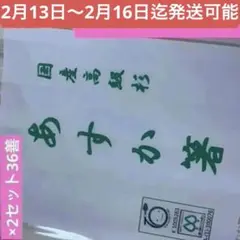 2月13日〜2月16日迄発送可能
国産高級杉
あすか箸
×2セット36善